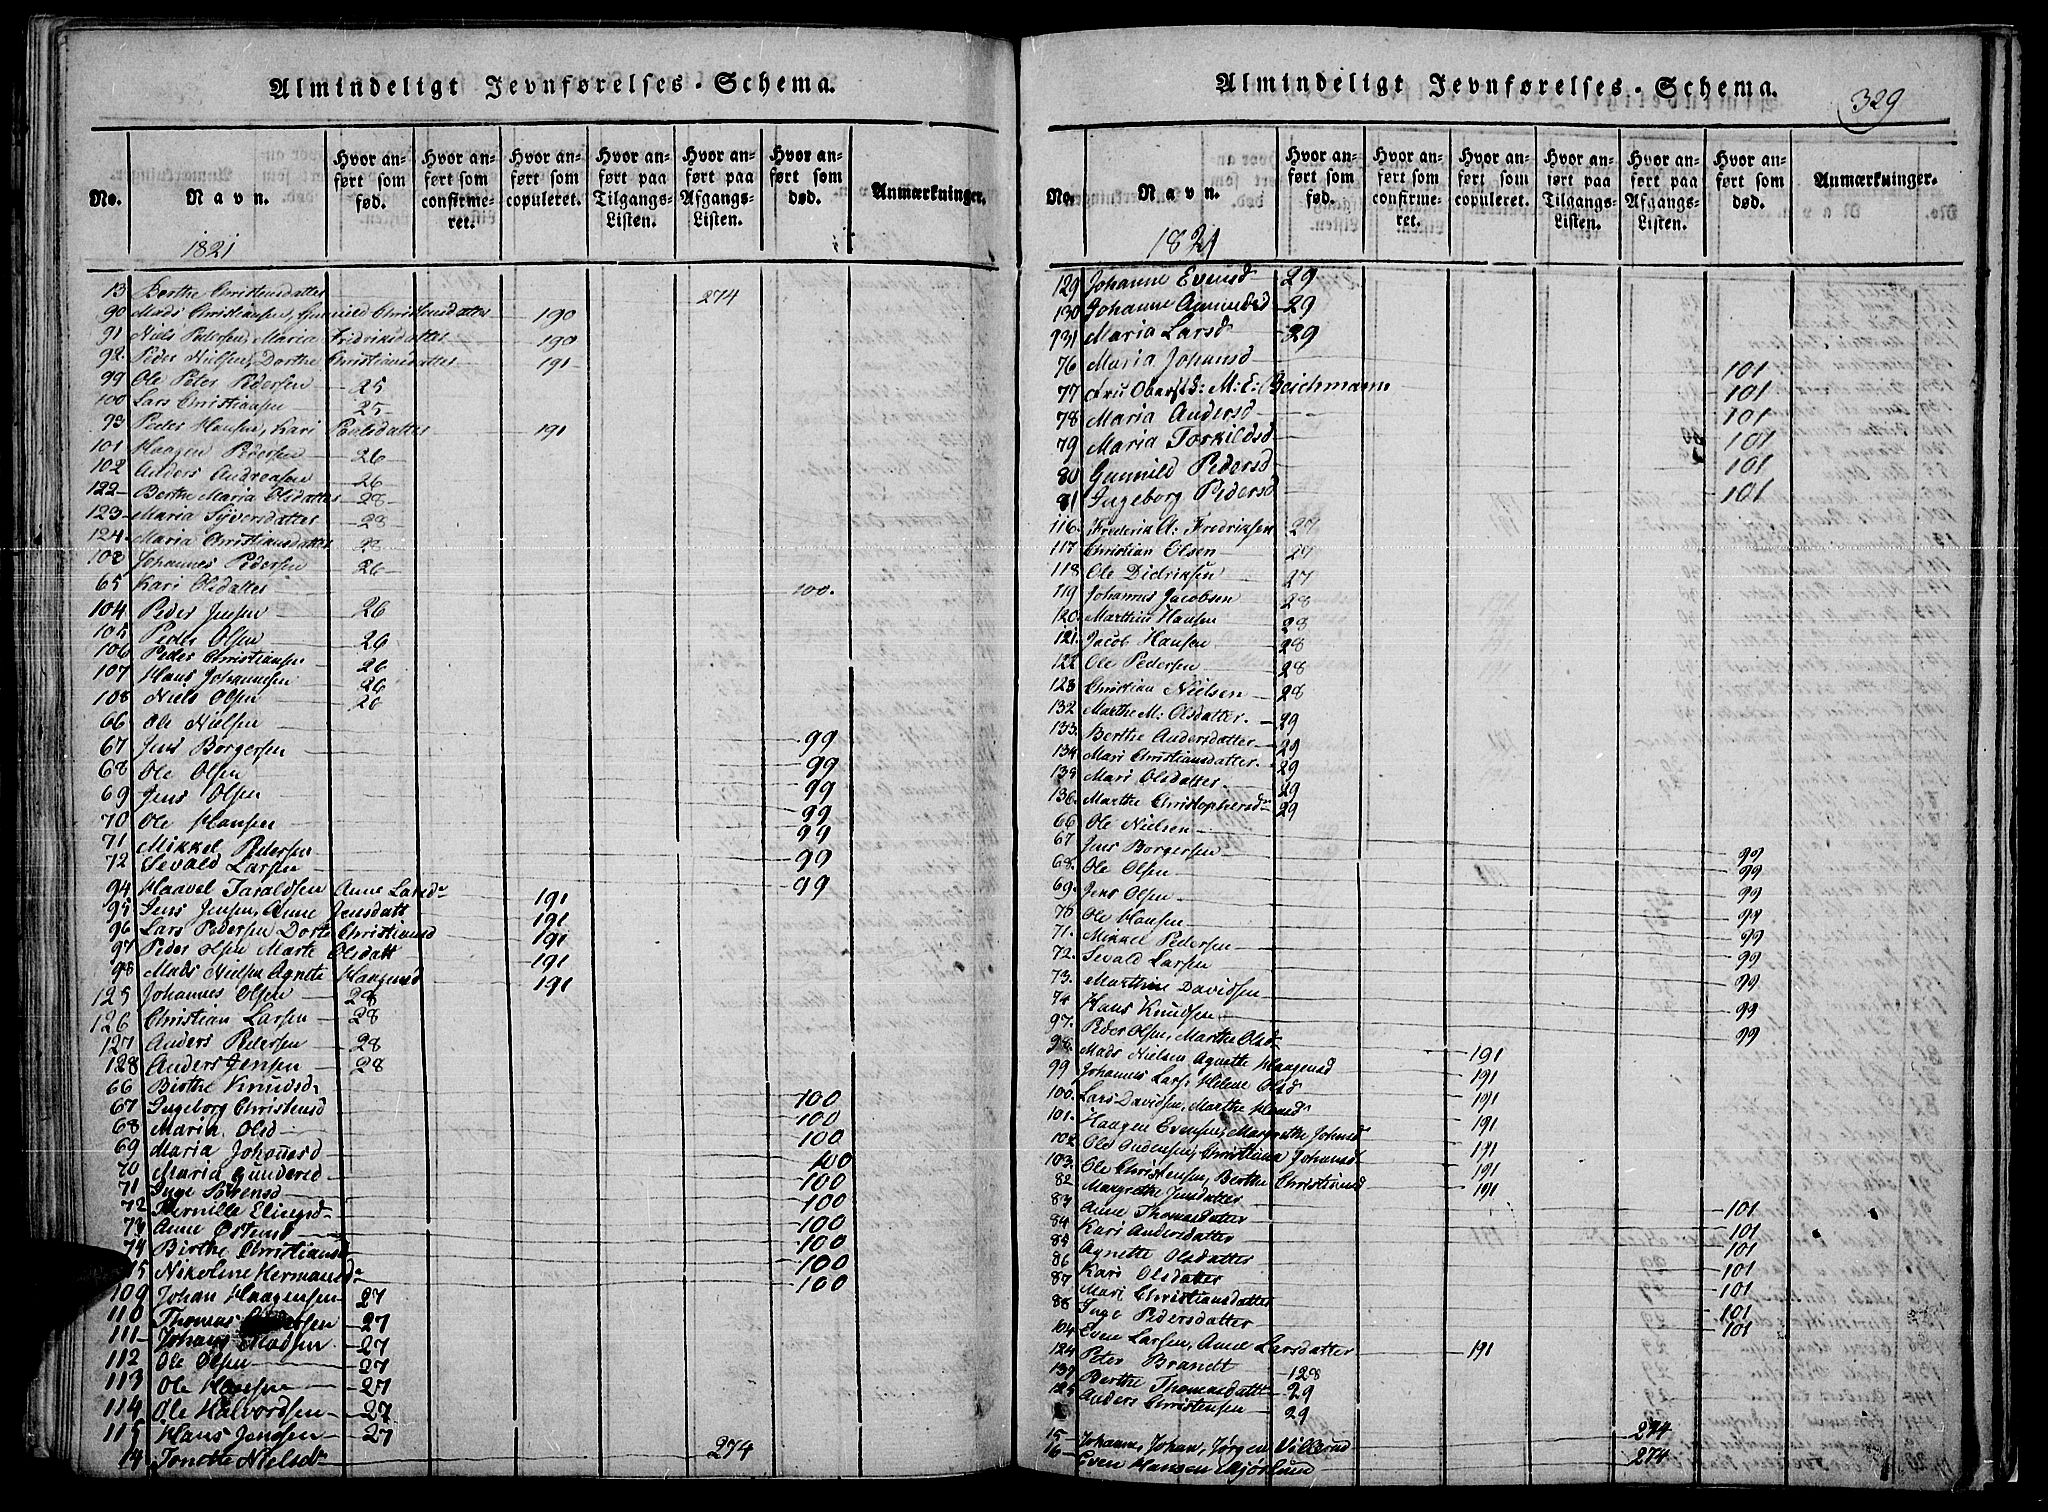 Almindeligt Jevnførelses-Schema.
No. Navn. Hvor anført som fød. Hvor anført som confirmeret. Hvor anført som copuleret. Hvor anført paa Tilgangs-Listen. Hvor anført paa Afgangs-Listen. Hvor anført som død. Anmærkninger.
1821
13 Berthe Christensdatter 274
90 Mads Christiansen, Gunnild Christensdatter 190
91 Niels Pedersen, Maria Fredriksdatter 190
92 Peder Nielsen, Dorthe Christiansdatter 191
99 Ole Peter Pedersen 25
100 Lars Christiansen 25
93 Peder Hansen, Kari Paulsdatter 191
101 Haagen Pedersen 26
102 Anders Andreasen 26
122 Berthe Maria Olsdatter 28
123 Maria Syversdatter 28
124 Maria Christiansdatter 28
103 Johannes Pedersen 26
65 Kari Olsdatter 100.
104 Peder Jensen 26
105 Peder Olsen 26
106 Peder Christiansen 26
107 Hans Johannesen 26
108 Niels Olsen 26
66 Ole Nielsen
67 Jens Borgersen 99
68 Ole Olsen 99
69 Jens Olsen 99
70 Ole Hansen 99
71 Mikkel Pedersen 99
72 Sevald Larsen 99
94 Haavel Taraldsen Anne Larsd. 99
95 Jens Jensen, Anne Jensdatt 191
96 Lars Pedersen Dorte Christiansd 191
97 Peder Olsen Marte Olsdatt 191
98 Mads Nielsen Agnete Haagensd 191
125 Johannes Olsen 28 191
126 Christian Larsen 28
127 Anders Pedersen 28
128 Anders Jensen 28
66 Birthe Knudsd.
67 Ingeborg Christensd 100
68 Maria Olsd 100
69 Maria Johannesd 100
70 Maria Gundersd 100
71 Inge Sørensd 100
72 Pernille Elingsd 100
73 Anne Østensd 100
74 Birthe Christiansd 100
75 Nikoline Hermansd. 100
109 Johan Haagensen 27 100
110 Thomas 27
111 Johans Madsen 27
112 Ole Olsen 27
113 Ole Hansen 27
114 Ole Halvordsen 27
115 Hans Jensen 27
14 Tonette Nielsd. 274
Almindeligt Jevnførelses-Schema.
329
No. Navn. Hvor anført som fød. Hvor anført som confirmeret. Hvor anført som copuleret. Hvor anført paa Tilgangs-Listen. Hvor anført paa Afgangs-Listen. Hvor anført som død. Anmærkninger.
1821
129 Johanne Evensd 29
130 Johanne Asmundsd 29
131 Maria Larsd 29
76 Maria Johansd 101
77 Fru Oberstl: M: E: Beichmann 101
78 Maria Andersd 101
79 Maria Torkildsd 101
80 Gunnild Pedersd 101
81 Ingeborg Pedersd 101
116. Frederik A. Fredriksen 27
117 Christian Olsen 27
118 Ole Didriksen 27
119 Johannes Jacobsen 28
120. Marthin Hansen 28
121. Jacob Hansen 28
122 Ole Pedersen 28
123 Christian Nielsen 28
132 Marthe M: Olsdatter. 29
133. Berthe Andersdatter 29
134 Mari Christiansdatter. 29
135 Mari Olsdatter 29
136. Marthe Christophersd. 29
66 Ole Nielsen
67 Jens Borgersen 99
68. Ole Olsen 99
69. Jens Olsen 99
70 Ole Hansen 99
71. Mikkel Pedersen 99
72. Sevald Larsen 99
73. Marthin Davidsen 99
74 Hans Knudsen 99
97. Peder Olsen, Marthe Olsd 99
98. Mads Nielsen Agnette Haagensd 191
99 Johannes Lars. Helene Olsd 191
100. Lars Davidsen, Marthe Hansd. 191
101. Haagen Evensen, Margrethe Johansd 191
102. Ole Andersen, Christine Johansd 191
103. Ole Christensen, Berthe Christiansd 191
82 Margrethe Jensdatter 191
83 Anne Thomasdatter 101
84 Kari Andersdatter 101
85 Agnette Olsdatter 101
86 Kari Olsdatter 101
87 Mari Christiansdatter 101
88 Inge Pedersdatter 101
104 Even Larsen, Anne Larsdatter 191 101
124 Peter Brandt 128
137 Berthe Thomasdatt. 29
125 Anders Christensen 29
15 Johanne, Johan, Jørgen Villerud 274
16 Even Hansen Mjørlund 274